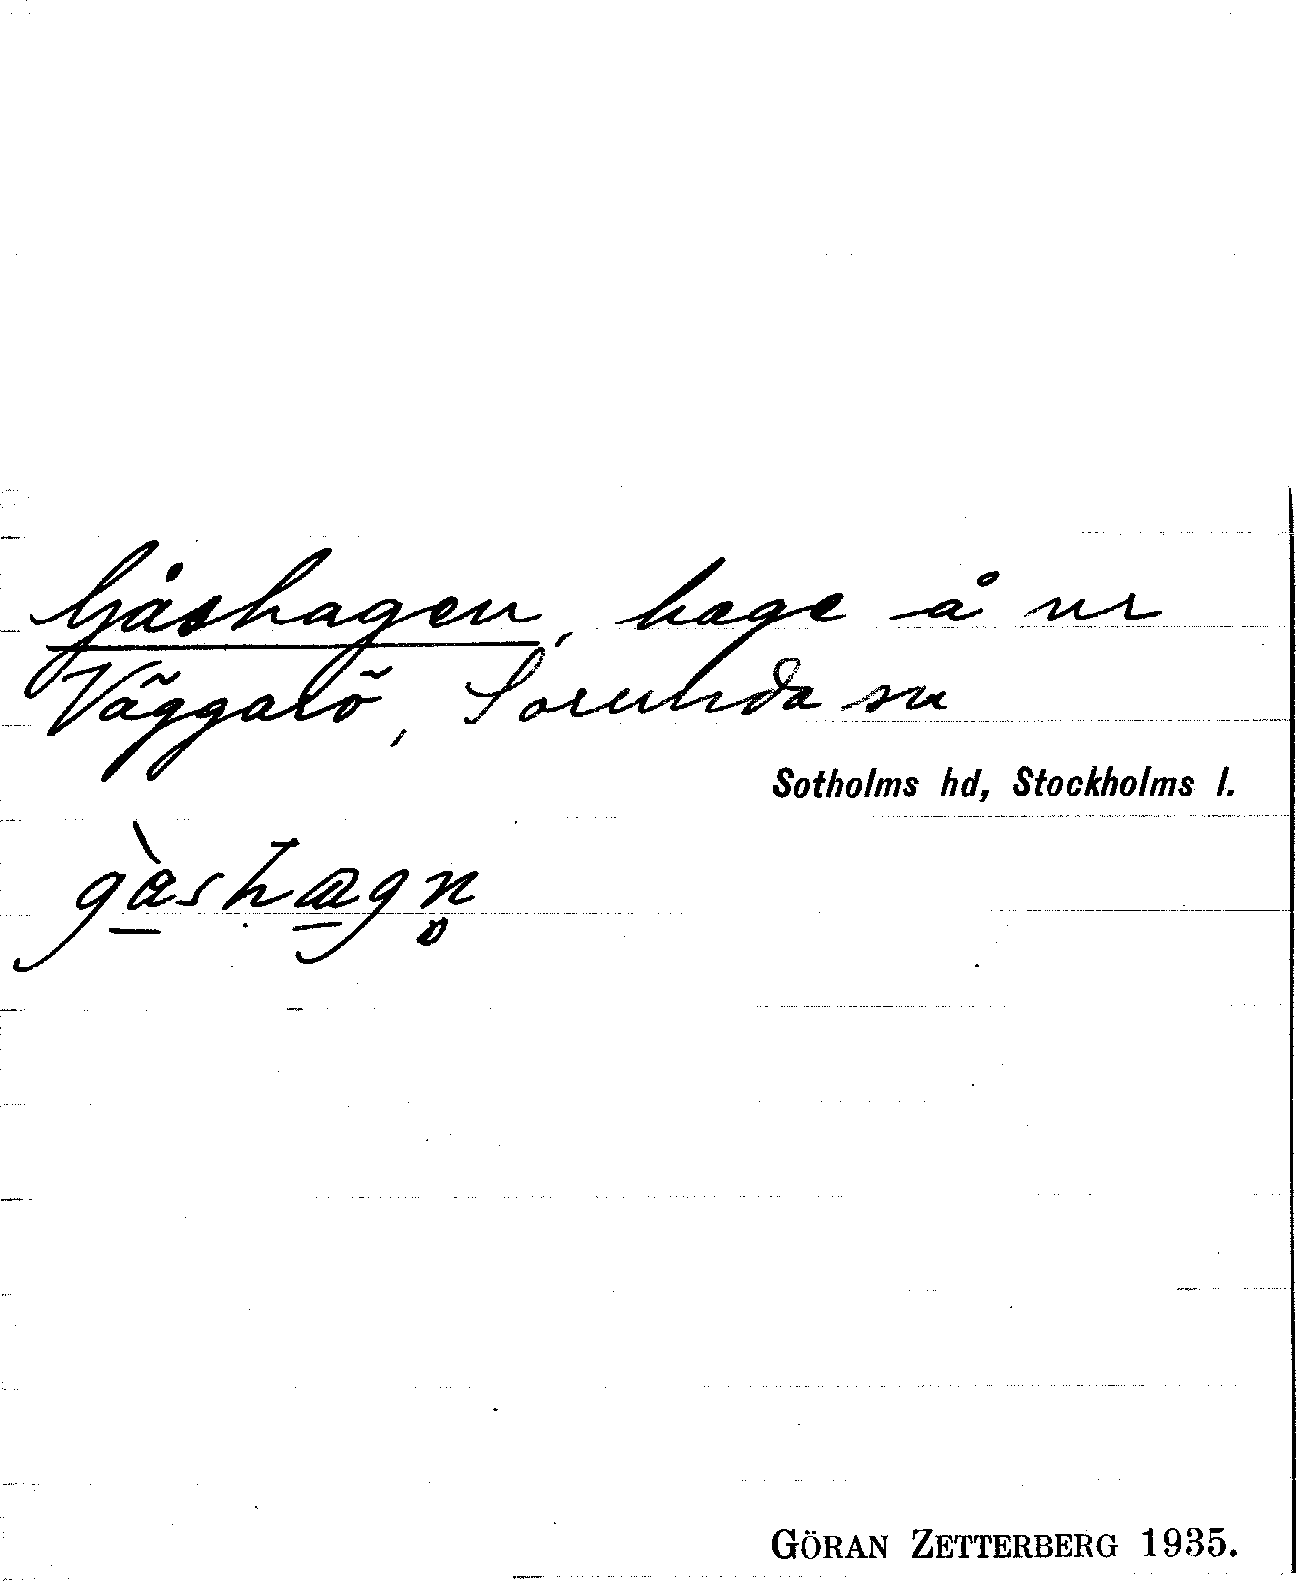 Gåshagen, hage å nr
Väggarö, Sorunda sn
Sotholms hd, Stockholms l.
gàshagn̥
GÖRAN ZETTERBERG 1935.